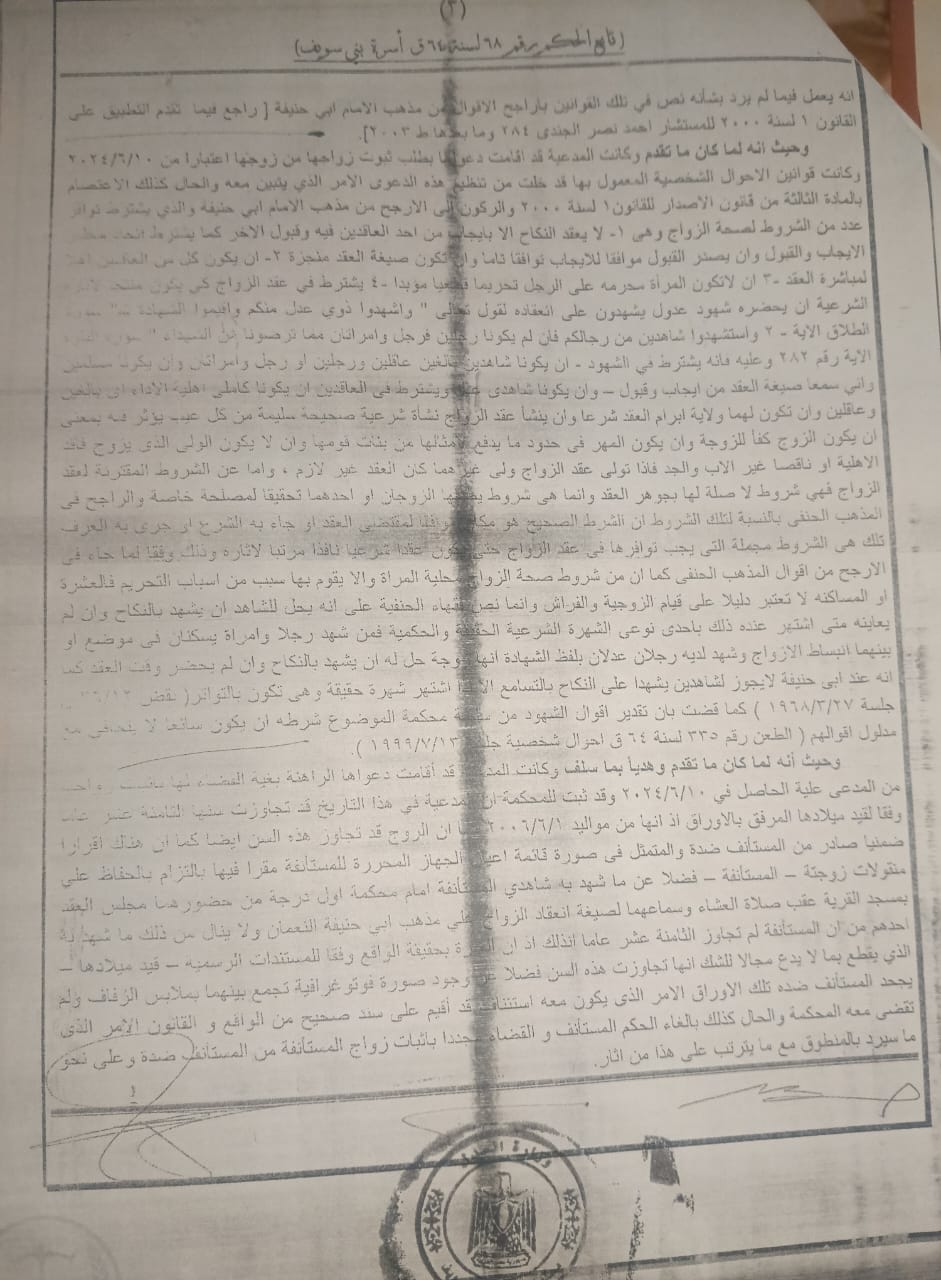 (٣)
(تابع الحكم رقم ٦٨ لسنة ٦٤ ق أسرة بني سويف)
انه يعمل فيما لم يرد بشأنه نص في تلك القوانين بارجح الاقوال من مذهب الامام ابي حنيفة [ راجع فيما تقدم التطبيق على
القانون ١ لسنة ٢٠٠٠ للمستشار احمد نصر الجندى ٢٨٤ وما بعدها ط ٢٠٠٣].
وحيث انه لما كان ما تقدم وكانت المدعية قد اقامت دعواها بطلب ثبوت زواجها من زوجها اعتبارا من ٢٠٢٤/٦/١٠
وكانت قوانين الاحوال الشخصية المعمول بها قد خلت من تنظيم هذه الدعوى الامر الذي يتبين معه والحال كذلك الاعتصام
بالمادة الثالثة من قانون الاصدار للقانون ١ لسنة ٢٠٠٠ والركون إلى الارجح من مذهب الامام ابي حنيفه والذي يشترط توافر
عدد من الشروط لصحة الزواج وهى ١- لا يعقد النكاح الا بايجاب من احد العاقدين فيه وقبول الاخر كما يشترط اتحاد
الايجاب والقبول وان يصدر القبول موافقا للايجاب توافقا تاما وان تكون صيغة العقد منجزة ٢- ان يكون كل من العاقدين اهلا
لمباشرة العقد -٣ ان لاتكون المرأة محرمه على الرجل تحريما قطعيا مؤبدا -٤ يشترط في عقد الزواج كي يكون منتجا لاثاره
الشرعية ان يحضره شهود عدول يشهدون على انعقاده لقول تعالى " واشهدوا ذوي عدل منكم واقيموا الشهادة لله" سورة
الطلاق الاية - ٢ واستشهدوا شاهدين من رجالكم فان لم يكونا رجلين فرجل وامراتان مما ترضونا من الشهداء " سورة البقرة
الاية رقم ٢٨٢ وعليه فانه يشترط في الشهود - ان يكونا شاهدين بالغين عاقلين ورجلين او رجل وامراتان وان يكونا مسلمين
واني سمعا صيغة العقد من ايجاب وقبول – وان يكونا شاهدى عدل ويشترط فى العاقدين ان يكونا كاملى اهلية الاداء اى بالغين
وعاقلين وان تكون لهما ولاية ابرام العقد شرعا وان ينشأ عقد الزواج نشأة شرعية صحيحة سليمة من كل عيب يؤثر فيه بمعنى
ان يكون الزوج كفأ للزوجة وان يكون المهر في حدود ما يدفع لامثالها من بنات قومها وان لا يكون الولى الذى يزوج فاقد
الاهلية او ناقصا غير الاب والجد فاذا تولى عقد الزواج ولى غيرهما كان العقد غير لازم ، واما عن الشروط المقترنة لعقد
الزواج فهي شروط لا صلة لها بجوهر العقد وانما هى شروط يضعها الزوجان او احدهما تحقيقا لمصلحة خاصة والراجح في
المذهب الحنفى بالنسبة لتلك الشروط ان الشرط الصحيح هو مكان موافقا لمقتضى العقد او جاء به الشرع او جرى به العرف
تلك هى الشروط مجملة التى يجب توافرها في عقد الزواج حتى يكون عقدا شرعيا نافذا مرتبا لاثاره وذلك وفقا لما جاء فى
الارجح من اقوال المذهب الحنفى كما ان من شروط صحة الزواج محلية المراة والا يقوم بها سبب من اسباب التحريم فالعشرة
او المساكنه لا تعتبر دليلا على قيام الزوجية والفراش وانما نص فقهاء الحنفية على انه يحل للشاهد ان يشهد بالنكاح وان لم
يعاينه متى اشتهر عنده ذلك باحدى نوعى الشهرة الشرعية الحقيقة والحكمية فمن شهد رجلا وامراة يسكنان فى موضع او
بينهما انبساط الازواج وشهد لديه رجلان عدلان بلفظ الشهادة انها زوجة حل له ان يشهد بالنكاح وان لم يحضر وقت العقد كما
انه عند ابى حنيفة لايجوز لشاهدين يشهدا على النكاح بالتسامع الا اذا اشتهر شهرة حقيقة وهى تكون بالتواتر( نقض
جلسة ١٩٦٨/٣/٢٧ ) كما قضت بان تقدير اقوال الشهود من سلطة محكمة الموضوع شرطه ان يكون سائغا لا يتجافى مع
مدلول اقوالهم ( الطعن رقم ٣٣٥ لسنة ٦٤ ق احوال شخصية جلسة ١٩٩٩/٧/١٣ ).
وحيث أنه لما كان ما تقدم وهدياً بما سلف وكانت المدعية قد أقامت دعواها الراهنة بغية القضاء لها
من المدعى علية الحاصل في ٢٠٢٤/٦/١٠ وقد ثبت للمحكمة ان المدعية في هذا التاريخ قد تجاوزت سنها الثامنة عشر عاما
وفقا لقيد ميلادها المرفق بالاوراق اذ انها من مواليد ٢٠٠٦/٦/١ كما ان الزوج قد تجاوز هذه السن ايضا كما ان هناك اقرارا
ضمنيا صادر من المستأنف ضدة والمتمثل فى صورة قائمة اعيان الجهاز المحررة للمستأنفة مقرا فيها بالتزام بالحفاظ علي
منقولات زوجتة – المستأنفة – فضلا عن ما شهد به شاهدي المستأنفة امام محكمة اول درجة من حضورهما مجلس العقد
بمسجد القرية عقب صلاة العشاء وسماعهما لصيغة انعقاد الزواج علي مذهب ابي حنيفة النعمان ولا ينال من ذلك ما شهد به
احدهم من ان المستأنفة لم تجاوز الثامنة عشر عاما انذلك اذ ان العبرة بحقيقة الواقع وفقا للمستندات الرسميه – قيد ميلادها –
الذي يقطع بما لا يدع مجالا للشك انها تجاوزت هذه السن فضلا عن وجود صورة فوتوغرافية تجمع بينهما بملابس الزفاف ولم
يجحد المستأنف ضده تلك الاوراق الامر الذي يكون معه استئنافه قد أقيم على سند صحيح من الواقع و القانون الامر الذى
تقضى معه المحكمة والحال كذلك بالغاء الحكم المستأنف و القضاء مجددا باثبات زواج المستأنفة من المستأنف ضدة وعلي نحو
ما سيرد بالمنطوق مع ما يترتب على هذا من اثار.
وزارة العدل